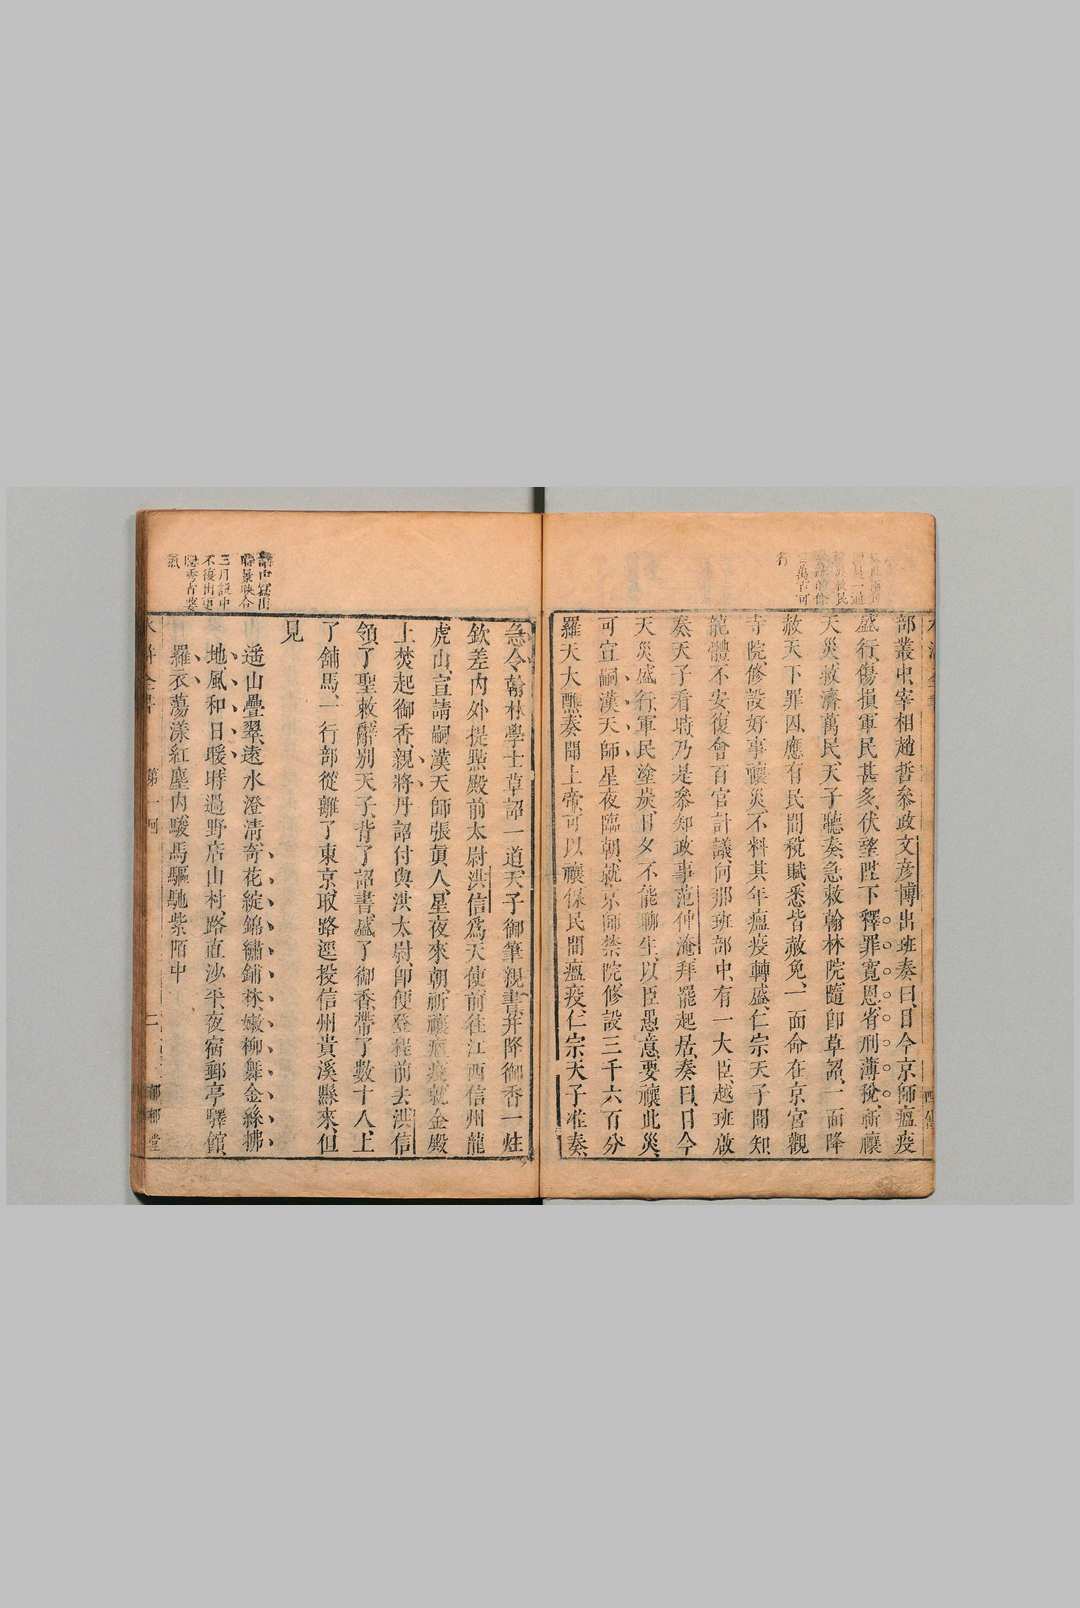 部叢中宰相趙哲參政文彥博出班奏曰目今京師瘟疫
盛行傷損軍民甚多伏望陛下釋罪寬恩省刑薄稅祈禳
天災救濟萬民天子聽奏急敕翰林院隨即草詔一面降
赦天下罪囚應有民間稅賦悉皆赦免一面命在京宮觀
寺院修設好事禳災不料其年瘟疫轉盛仁宗天子聞知
龍體不安復會百官計議向那班部中有一大臣越班啟
奏天子看時乃是參知政事范仲淹拜罷起居奏曰目今
天災盛行軍民塗炭日夕不能聊生以臣愚意要禳此災
可宣嗣漢天師星夜臨朝就京師禁院修設三千六百分
羅天大醮奏聞上帝可以禳保民間瘟疫仁宗天子准奏
急令翰林學士草詔一道天子御筆親書并降御香一炷
欽差內外提點殿前太尉洪信爲天使前往江西信州龍
虎山宣請嗣漢天師張眞人星夜來朝祈禳瘟疫就金殿
上焚起御香親將丹詔付與洪太尉即便登程前去洪信
領了聖敕辭別天子背了詔書盛了御香帶了數十人上
了鋪馬一行部從離了東京取路逕投信州貴溪縣來但
見
遙山疊翠遠水澄清奇花綻錦繡鋪林嫩柳舞金絲拂
地風和日暖時過野店山村路直沙平夜宿郵亭驛館
羅衣蕩漾紅塵內駿馬驅馳紫陌中
第一回
二
郁郁堂